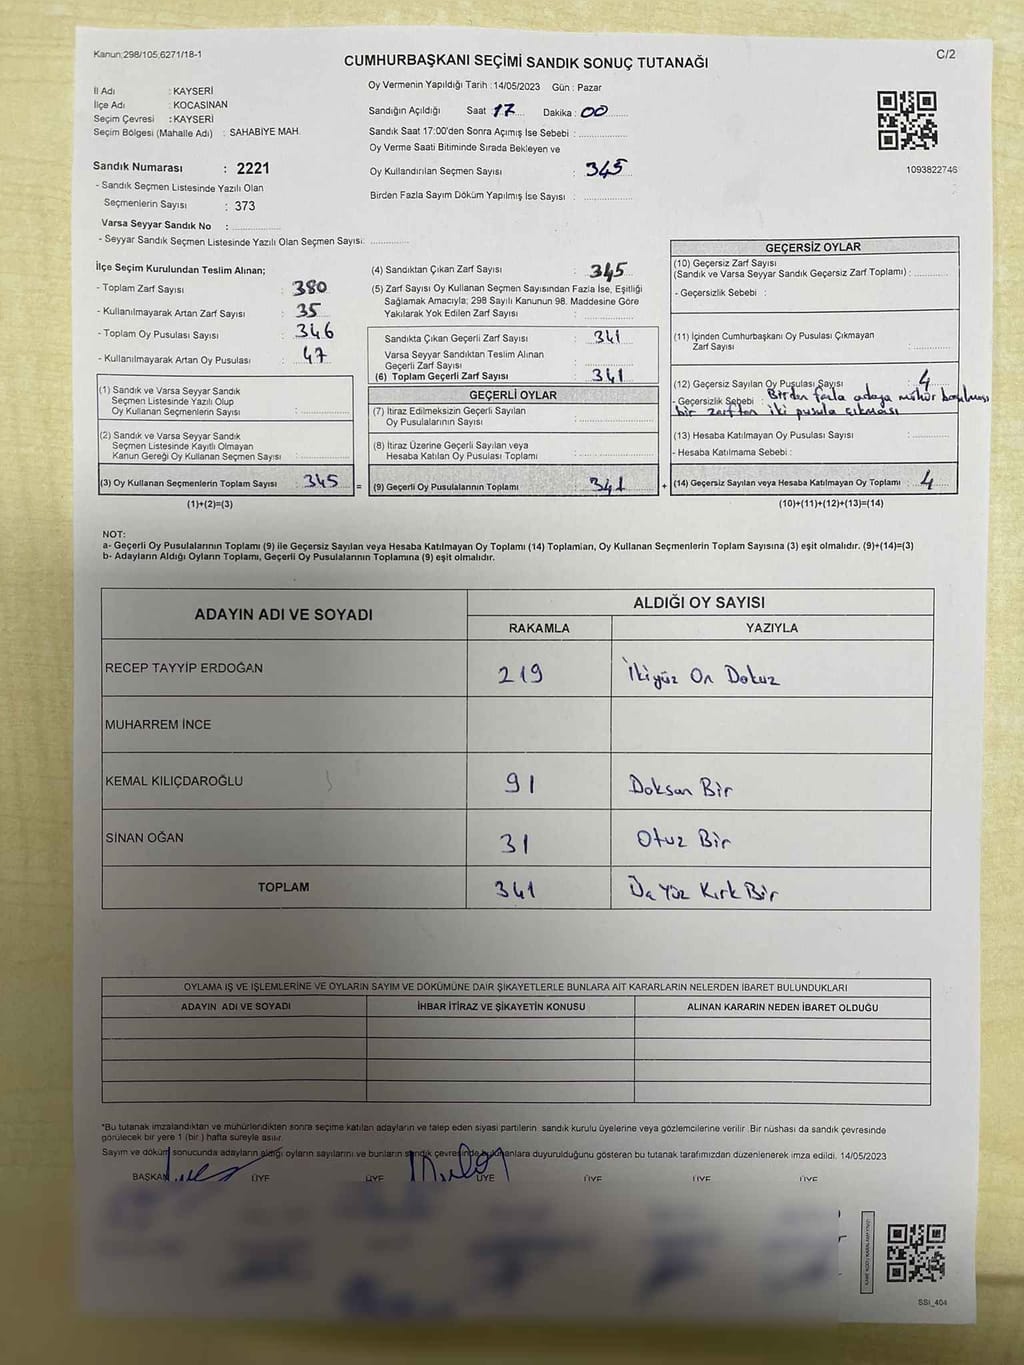 Kanun:298/105;6271/18-1
C/2
CUMHURBAŞKANI SEÇİMİ SANDIK SONUÇ TUTANAĞI
İl Adı : KAYSERİ
İlçe Adı : KOCASİNAN
Seçim Çevresi : KAYSERİ
Seçim Bölgesi (Mahalle Adı) : SAHABİYE MAH.
Sandık Numarası : 2221
- Sandık Seçmen Listesinde Yazılı Olan
Seçmenlerin Sayısı : 373
Varsa Seyyar Sandık No :
- Seyyar Sandık Seçmen Listesinde Yazılı Olan Seçmen Sayısı:
Oy Vermenin Yapıldığı Tarih : 14/05/2023 Gün : Pazar
Sandığın Açıldığı Saat 17 Dakika : 00
Sandık Saat 17:00'den Sonra Açımış İse Sebebi :
Oy Verme Saati Bitiminde Sırada Bekleyen ve
Oy Kullandırılan Seçmen Sayısı : 345
Birden Fazla Sayım Döküm Yapılmış İse Sayısı :
1093822746
İlçe Seçim Kurulundan Teslim Alınan;
- Toplam Zarf Sayısı : 380
- Kullanılmayarak Artan Zarf Sayısı : 35
- Toplam Oy Pusulası Sayısı : 346
- Kullanılmayarak Artan Oy Pusulası : 47
(1) Sandık ve Varsa Seyyar Sandık
Seçmen Listesinde Yazılı Olup
Oy Kullanan Seçmenlerin Sayısı :
(2) Sandık ve Varsa Seyyar Sandık
Seçmen Listesinde Kayıtlı Olmayan
Kanun Gereği Oy Kullanan Seçmen Sayısı :
(3) Oy Kullanan Seçmenlerin Toplam Sayısı : 345 =
(1)+(2)=(3)
(4) Sandıktan Çıkan Zarf Sayısı : 345
(5) Zarf Sayısı Oy Kullanan Seçmen Sayısından Fazla İse, Eşitliği
Sağlamak Amacıyla; 298 Sayılı Kanunun 98. Maddesine Göre
Yakılarak Yok Edilen Zarf Sayısı :
Sandıkta Çıkan Geçerli Zarf Sayısı : 341
Varsa Seyyar Sandıktan Teslim Alınan
Geçerli Zarf Sayısı :
(6) Toplam Geçerli Zarf Sayısı : 341
GEÇERLİ OYLAR
(7) İtiraz Edilmeksizin Geçerli Sayılan
Oy Pusulalarının Sayısı :
(8) İtiraz Üzerine Geçerli Sayılan veya
Hesaba Katılan Oy Pusulası Toplamı :
(9) Geçerli Oy Pusulalarının Toplamı : 341 +
GEÇERSİZ OYLAR
(10) Geçersiz Zarf Sayısı
(Sandık ve Varsa Seyyar Sandık Geçersiz Zarf Toplamı) :
- Geçersizlik Sebebi :
(11) İçinden Cumhurbaşkanı Oy Pusulası Çıkmayan
Zarf Sayısı :
(12) Geçersiz Sayılan Oy Pusulası Sayısı : 4
- Geçersizlik Sebebi : Birden fazla adaya mühür basılması
bir zarftan iki pusula çıkması
(13) Hesaba Katılmayan Oy Pusulası Sayısı :
- Hesaba Katılmama Sebebi :
(14) Geçersiz Sayılan veya Hesaba Katılmayan Oy Toplamı : 4
(10)+(11)+(12)+(13)=(14)
NOT:
a- Geçerli Oy Pusulalarının Toplamı (9) ile Geçersiz Sayılan veya Hesaba Katılmayan Oy Toplamı (14) Toplamları, Oy Kullanan Seçmenlerin Toplam Sayısına (3) eşit olmalıdır. (9)+(14)=(3)
b- Adayların Aldığı Oyların Toplamı, Geçerli Oy Pusulalarının Toplamına (9) eşit olmalıdır.
ADAYIN ADI VE SOYADI
ALDIĞI OY SAYISI
RAKAMLA YAZIYLA
RECEP TAYYİP ERDOĞAN 219 İkiyüz On Dokuz
MUHARREM İNCE
KEMAL KILIÇDAROĞLU 91 Doksan Bir
SİNAN OĞAN 31 Otuz Bir
TOPLAM 341 Üç Yüz Kırk Bir
OYLAMA İŞ VE İŞLEMLERİNE VE OYLARIN SAYIM VE DÖKÜMÜNE DAİR ŞİKAYETLERLE BUNLARA AİT KARARLARIN NELERDEN İBARET BULUNDUKLARI
ADAYIN ADI VE SOYADI İHBAR İTİRAZ VE ŞİKAYETİN KONUSU ALINAN KARARIN NEDEN İBARET OLDUĞU
*Bu tutanak imzalandıktan ve mühürlendikten sonra seçime katılan adayların ve talep eden siyasi partilerin sandık kurulu üyelerine veya gözlemcilerine verilir. Bir nüshası da sandık çevresinde
görülecek bir yere 1 (bir) hafta süreyle asılır.
Sayım ve döküm sonucunda adayların aldığı oyların sayılarını ve bunların sandık çevresinde bulunanlara duyurulduğunu gösteren bu tutanak tarafımızdan düzenlenerek imza edildi. 14/05/2023
BAŞKAN ÜYE ÜYE ÜYE ÜYE ÜYE ÜYE
SSI_404